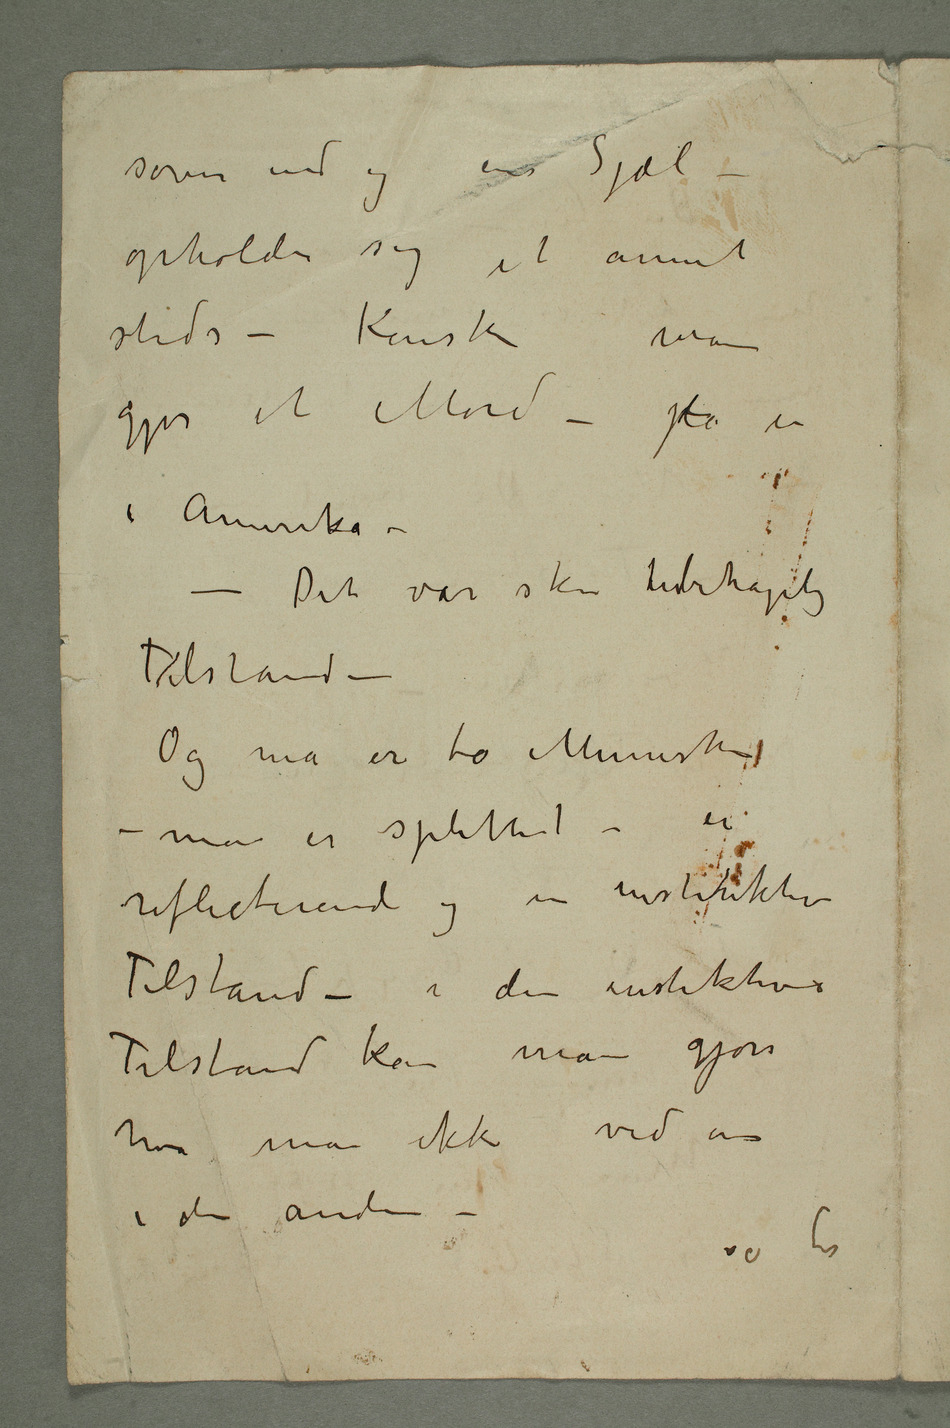 sover ind og ens Sjæl –
opholder sig et annet
steds – Kanske man
gjør et Mord – på en
i Amerika –
– Det var sku ubehagelig
Tilstand –
Og man er to Mennesker
– man er splittet – en
reflecterende og en instinktiv
Tilstand – i den instiktive
Tilstand kan man gjøre
hva man ikke ved om
i den anden –